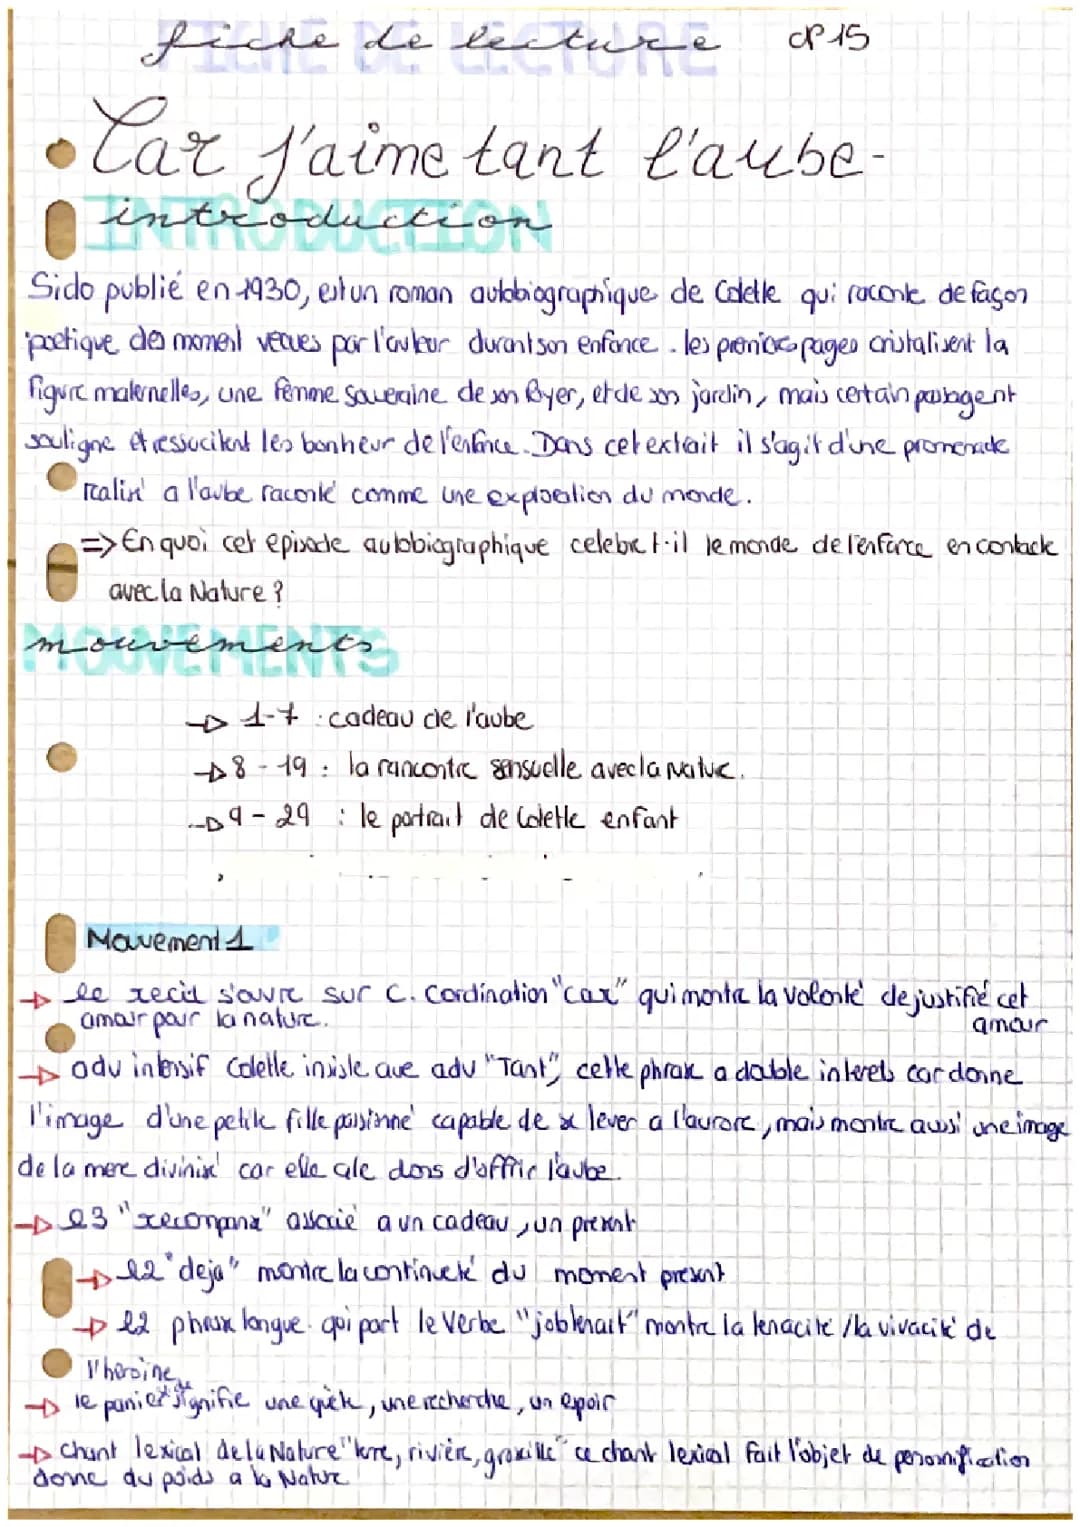 fiche de lecture CP 15
FICHE DE LECTURE
• Car j'aime tant l'aube-
introduction
INTRODUCTION
Sido publié en 1930, est un roman autobiographique de Colette qui raconte de façon
poetique des moment vecues par l'auteur durant son enfance. les premières pages cristalisent la
figure maternelles, une femme souveraine de son foyer, et de son jardin, mais certain passagent
souligne et ressucitent les bonheur de l'enfance. Dans cet extrait il s'agit d'une promenade
realisé a l'aube raconté comme une exploration du monde.
=> En quoi cet episode autobiographique celebre t-il le monde de l'enfance en contacte
avec la Nature ?
mouvements
MOUVEMENTS
→ 1-7 : cadeau de l'aube
→ 8 - 19 : la rancontre sensuelle avec la Nature.
→ 9 - 29 : le portrait de Colette enfant
Mouvement 1
→ le recit s'ouvre sur C. Cordination "car" qui montre la volonté de justifié cet
amour pour la nature. amour
→ adv intensif Colette insiste ave adv "Tant", cette phrase a double interets car donne
l'image d'une petite fille passionné capable de se lever a l'aurore, mais montre aussi une image
de la mere divinisé car elle a le dons d'offrir l'aube.
→ l3 "recompense" associé a un cadeau, un present
→ l2 "deja" montre la continueté du moment present
→ l2 phrase longue qui part le verbe "j'obtenait" montre la tenacité / la vivacité de
l'heroine
→ le panier signifie une quête, une recherche, un espoir
→ chant lexical de la Nature "terre, rivière, groseille" ce chant lexical fait l'objet de personnification
donne du poids a la Nature